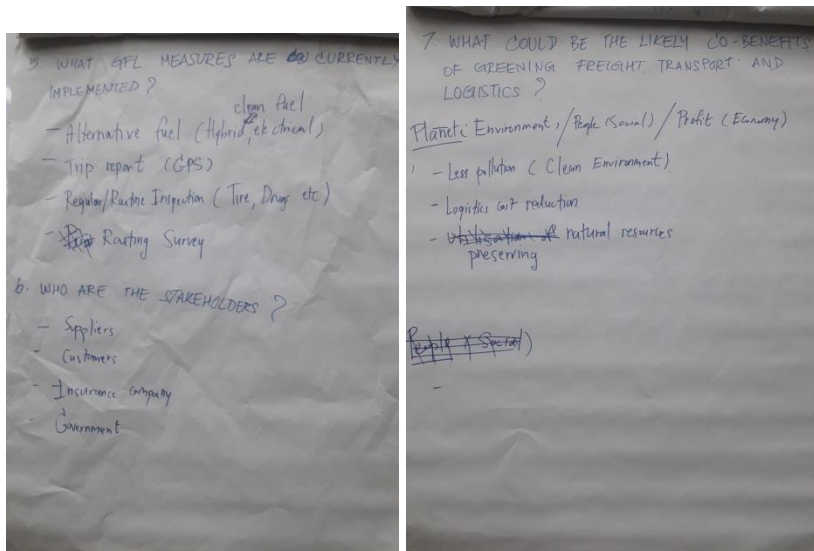 5 WHAT GFL MEASURES ARE CURRENTLY
IMPLEMENTED?
clean fuel
- Alternative fuel (Hybrid, electrical)
- Trip report (GPS)
- Regular/Routine Inspection (Tire, Drugs etc)
- Routing Survey
6. WHO ARE THE STAKEHOLDERS?
- Suppliers
- Customers
- Insurance company
- Government
7. WHAT COULD BE THE LIKELY CO-BENEFITS
OF GREENING FREIGHT TRANSPORT AND
LOGISTICS?
Planet: Environment, / People (Social) / Profit (Economy)
- Less pollution (Clean Environment)
- Logistics cost reduction
- utilisation of natural resources
preserving
People (Social)
-